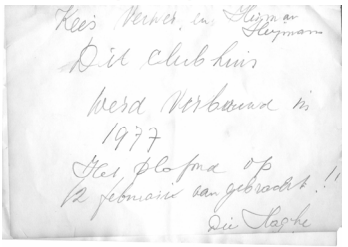 Kees Verwer, en Herman
Heymans
Dit clubhuis
werd verbouwd in
1977
Het plafond op
12 februari aangebracht!!
Die Haghe